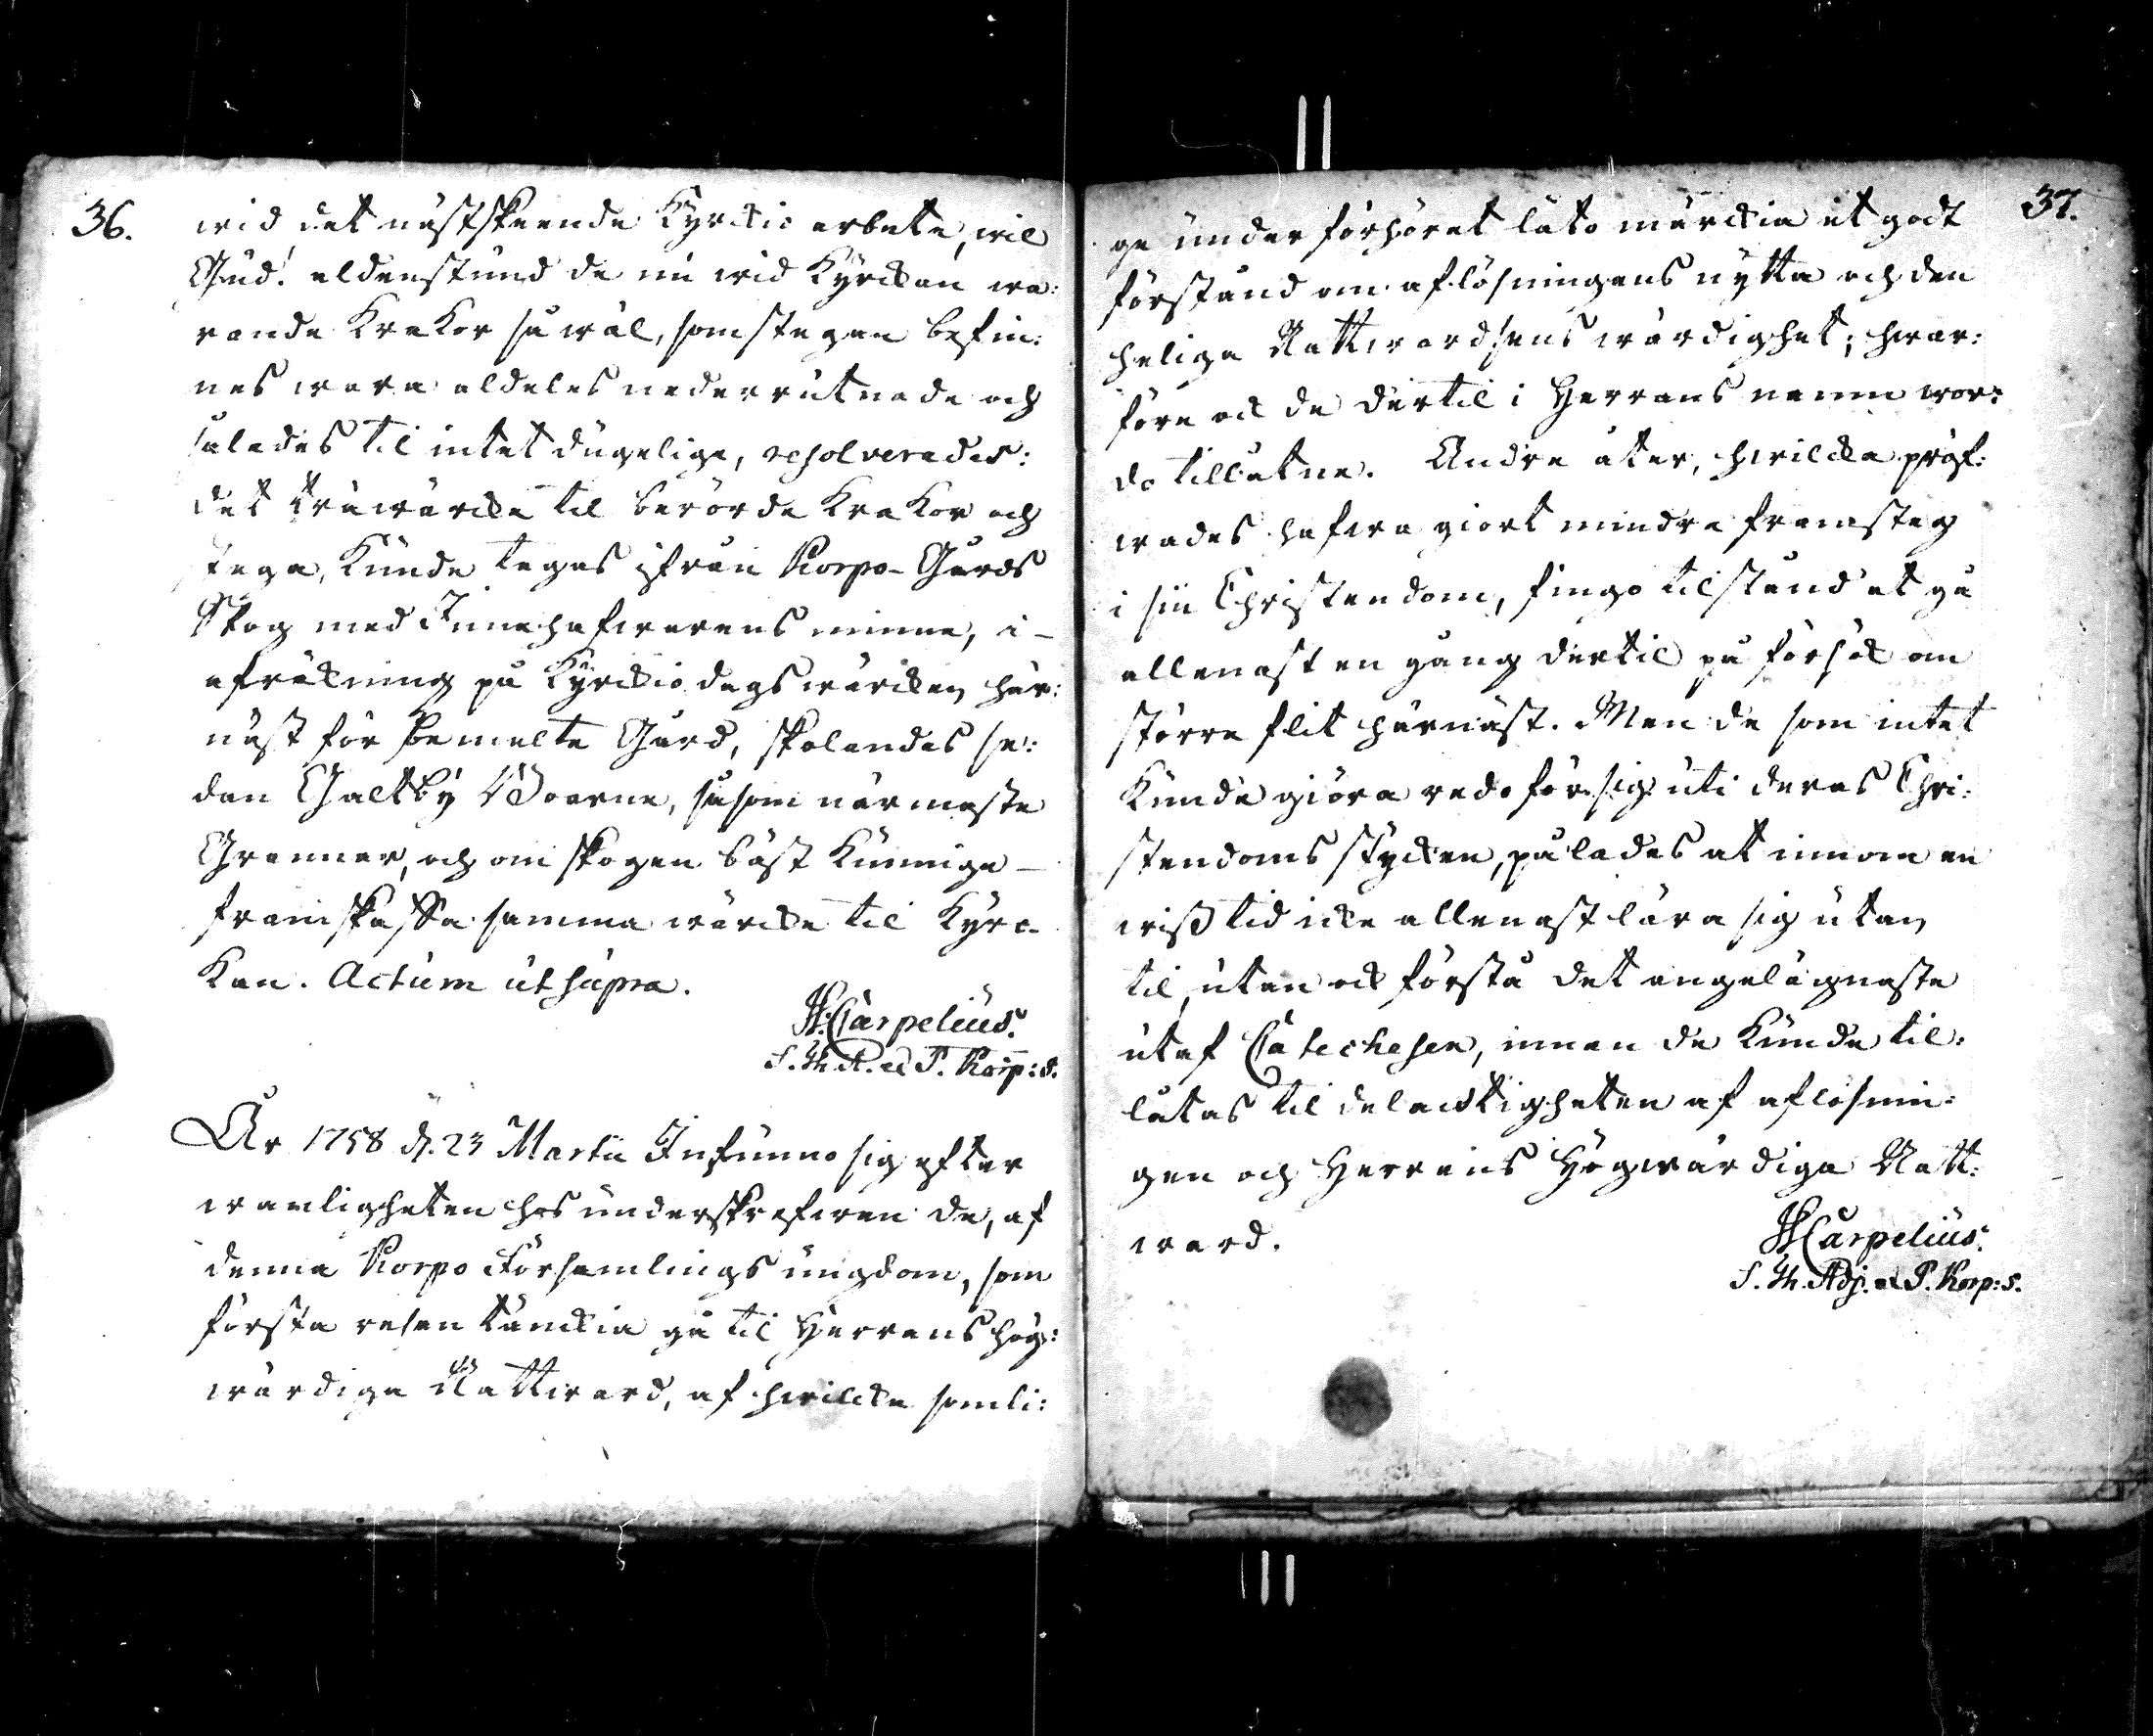 36.
wid det nästskeende Kyrckio arbete, wil
Gud! aldenstund de nu wid Kyrckan wa:
rande Krakor så wäl, som stegan befin:
nes wara aldeles nederrutnade och
således til intet dugelige, resolverades:
det träwärcke til berörde Krakor och
stega, kunde tagas ifrån Korpo-Gårds
Skog med Innehafwarens minne, i –
afräkning på Kyrckio dagswärcken här:
näst för bemälte Gård, skolandes se:
dan Galtby Boarne, såsom närmaste
Grannar, och om skogen bäst kunnige –
framskaffa samma wärcke til Kyrc-
kan. Actum ut supra.
H. Carpelius.
S. Th. A. et P. Korp:s.
År 1758 d. 23 Martii Infunno sig efter
wanligheten hos underskrefwen de, af
denna Korpo Församlings ungdom, som
första resan tänckia gå til Herrans hög:
wärdiga Nattward, af hwilcka somli:
37.
ge under förhöret låto märckia et godt
förstånd om aflösningens nytta och den
heliga Nattwardsens wärdighet; hwar:
före ock de dertil i Herrans namn wor:
do tillåtne. Andre åter, hwilcka pröf:
wades hafwa giort mindre framsteg
i sin Christendom, fingo tilstånd at gå
allenast en gång dertil på försök om
större flit härnäst. Men de som intet
kunde giöra redo för sig uti deras Chri:
stendoms stycken, pålades at innom en
wiss tid icke allenast lära sig utan
til, utan ock förstå det angelägnaste
utaf Catechesen, innan de kunde til:
låtas til delacktigheten af aflösnin:
gen och Herrans Högwärdiga Natt:
ward.
H Carpelius.
S. Th. Adj. et P. Korp:s.